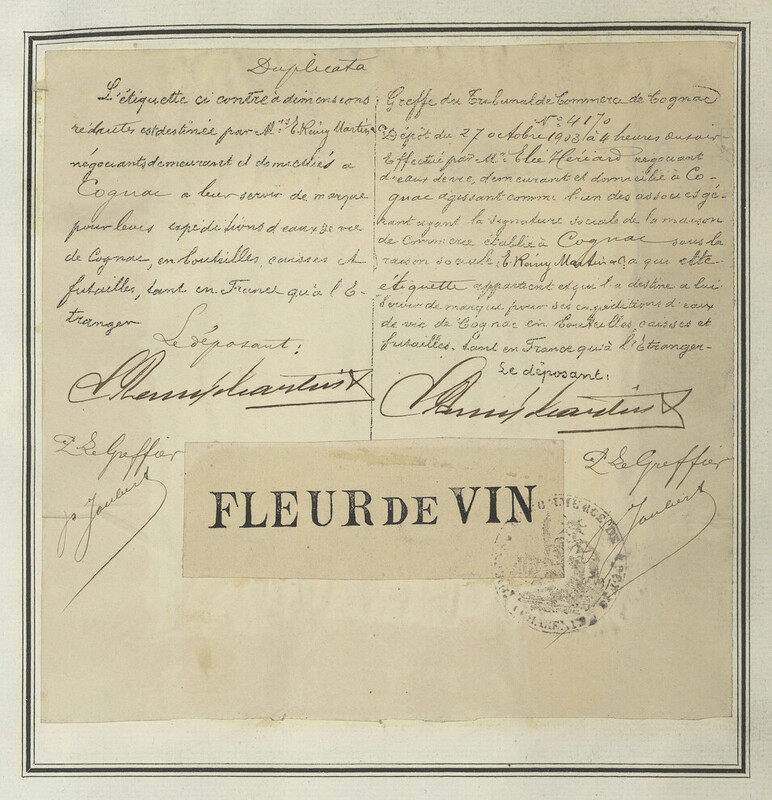 Duplicata
L'étiquette ci contre à dimensions
réduites est destinée par Mrs E. Rémy Martin,
négociants demeurant et domiciliés a
Cognac a leur servir de marque
pour leurs expéditions d'eaux de vie
de Cognac, en bouteilles, caisses et
futailles, tant en France qu'à l'E-
tranger
Le déposant:
E Remy Martin &
P. Le Greffier
Joubert
Greffe du Tribunal de Commerce de Cognac
No 4170
Dépôt du 27 octobre 1903 à 4 heures du soir
Effectué par Mr Elie Hériard négociant
d'eaux de vie, demeurant et domicilié à Co-
gnac agissant comme l'un des associés gé-
rant ayant la signature sociale de la maison
de Commerce établie à Cognac sous la
raison sociale: E. Rémy Martin & Ca a qui cette
étiquette appartient et qui l'a destine a lui
servir de marque pour ses expéditions d'eaux
de vie de Cognac en bouteilles, caisses et
futailles. tant en France qu'à l'Etranger-
Le déposant:
E Remy Martin &
P. Le Greffier
Joubert
FLEUR DE VIN
COMMERCE DE
CHARENTE